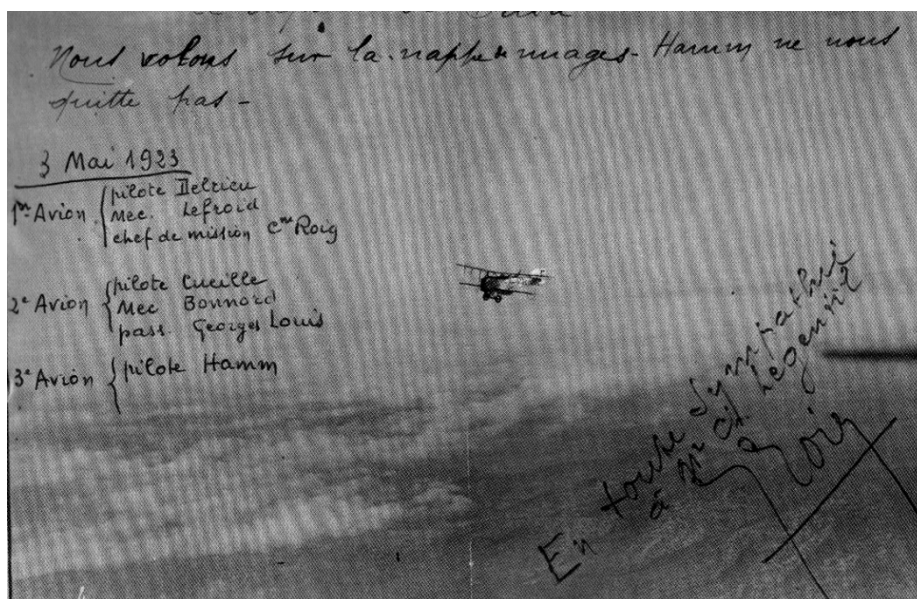 Nous volons sur la nappe de nuages - Hamm ne nous
quitte pas -
3 Mai 1923
1er Avion
pilote Delrieu
Mec. Lefroid
chef de mission Cne Roig
2e Avion
pilote Cueille
Mec Bonnord
pass. Georges Louis
3e Avion
pilote Hamm
En toute Sympathie
à Mr
Roig